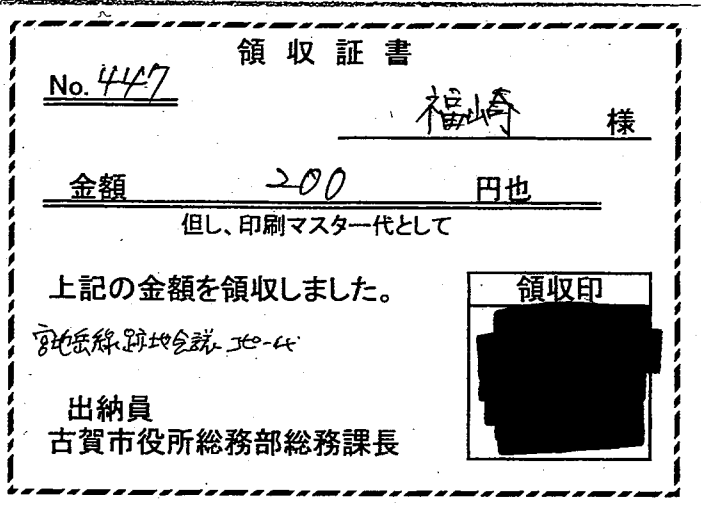 領収証書
No. 447
福崎 様
金額 200 円也
但し、印刷マスター代として
上記の金額を領収しました。
領収印
宮地岳線跡地会議 コピー代
出納員
古賀市役所総務部総務課長